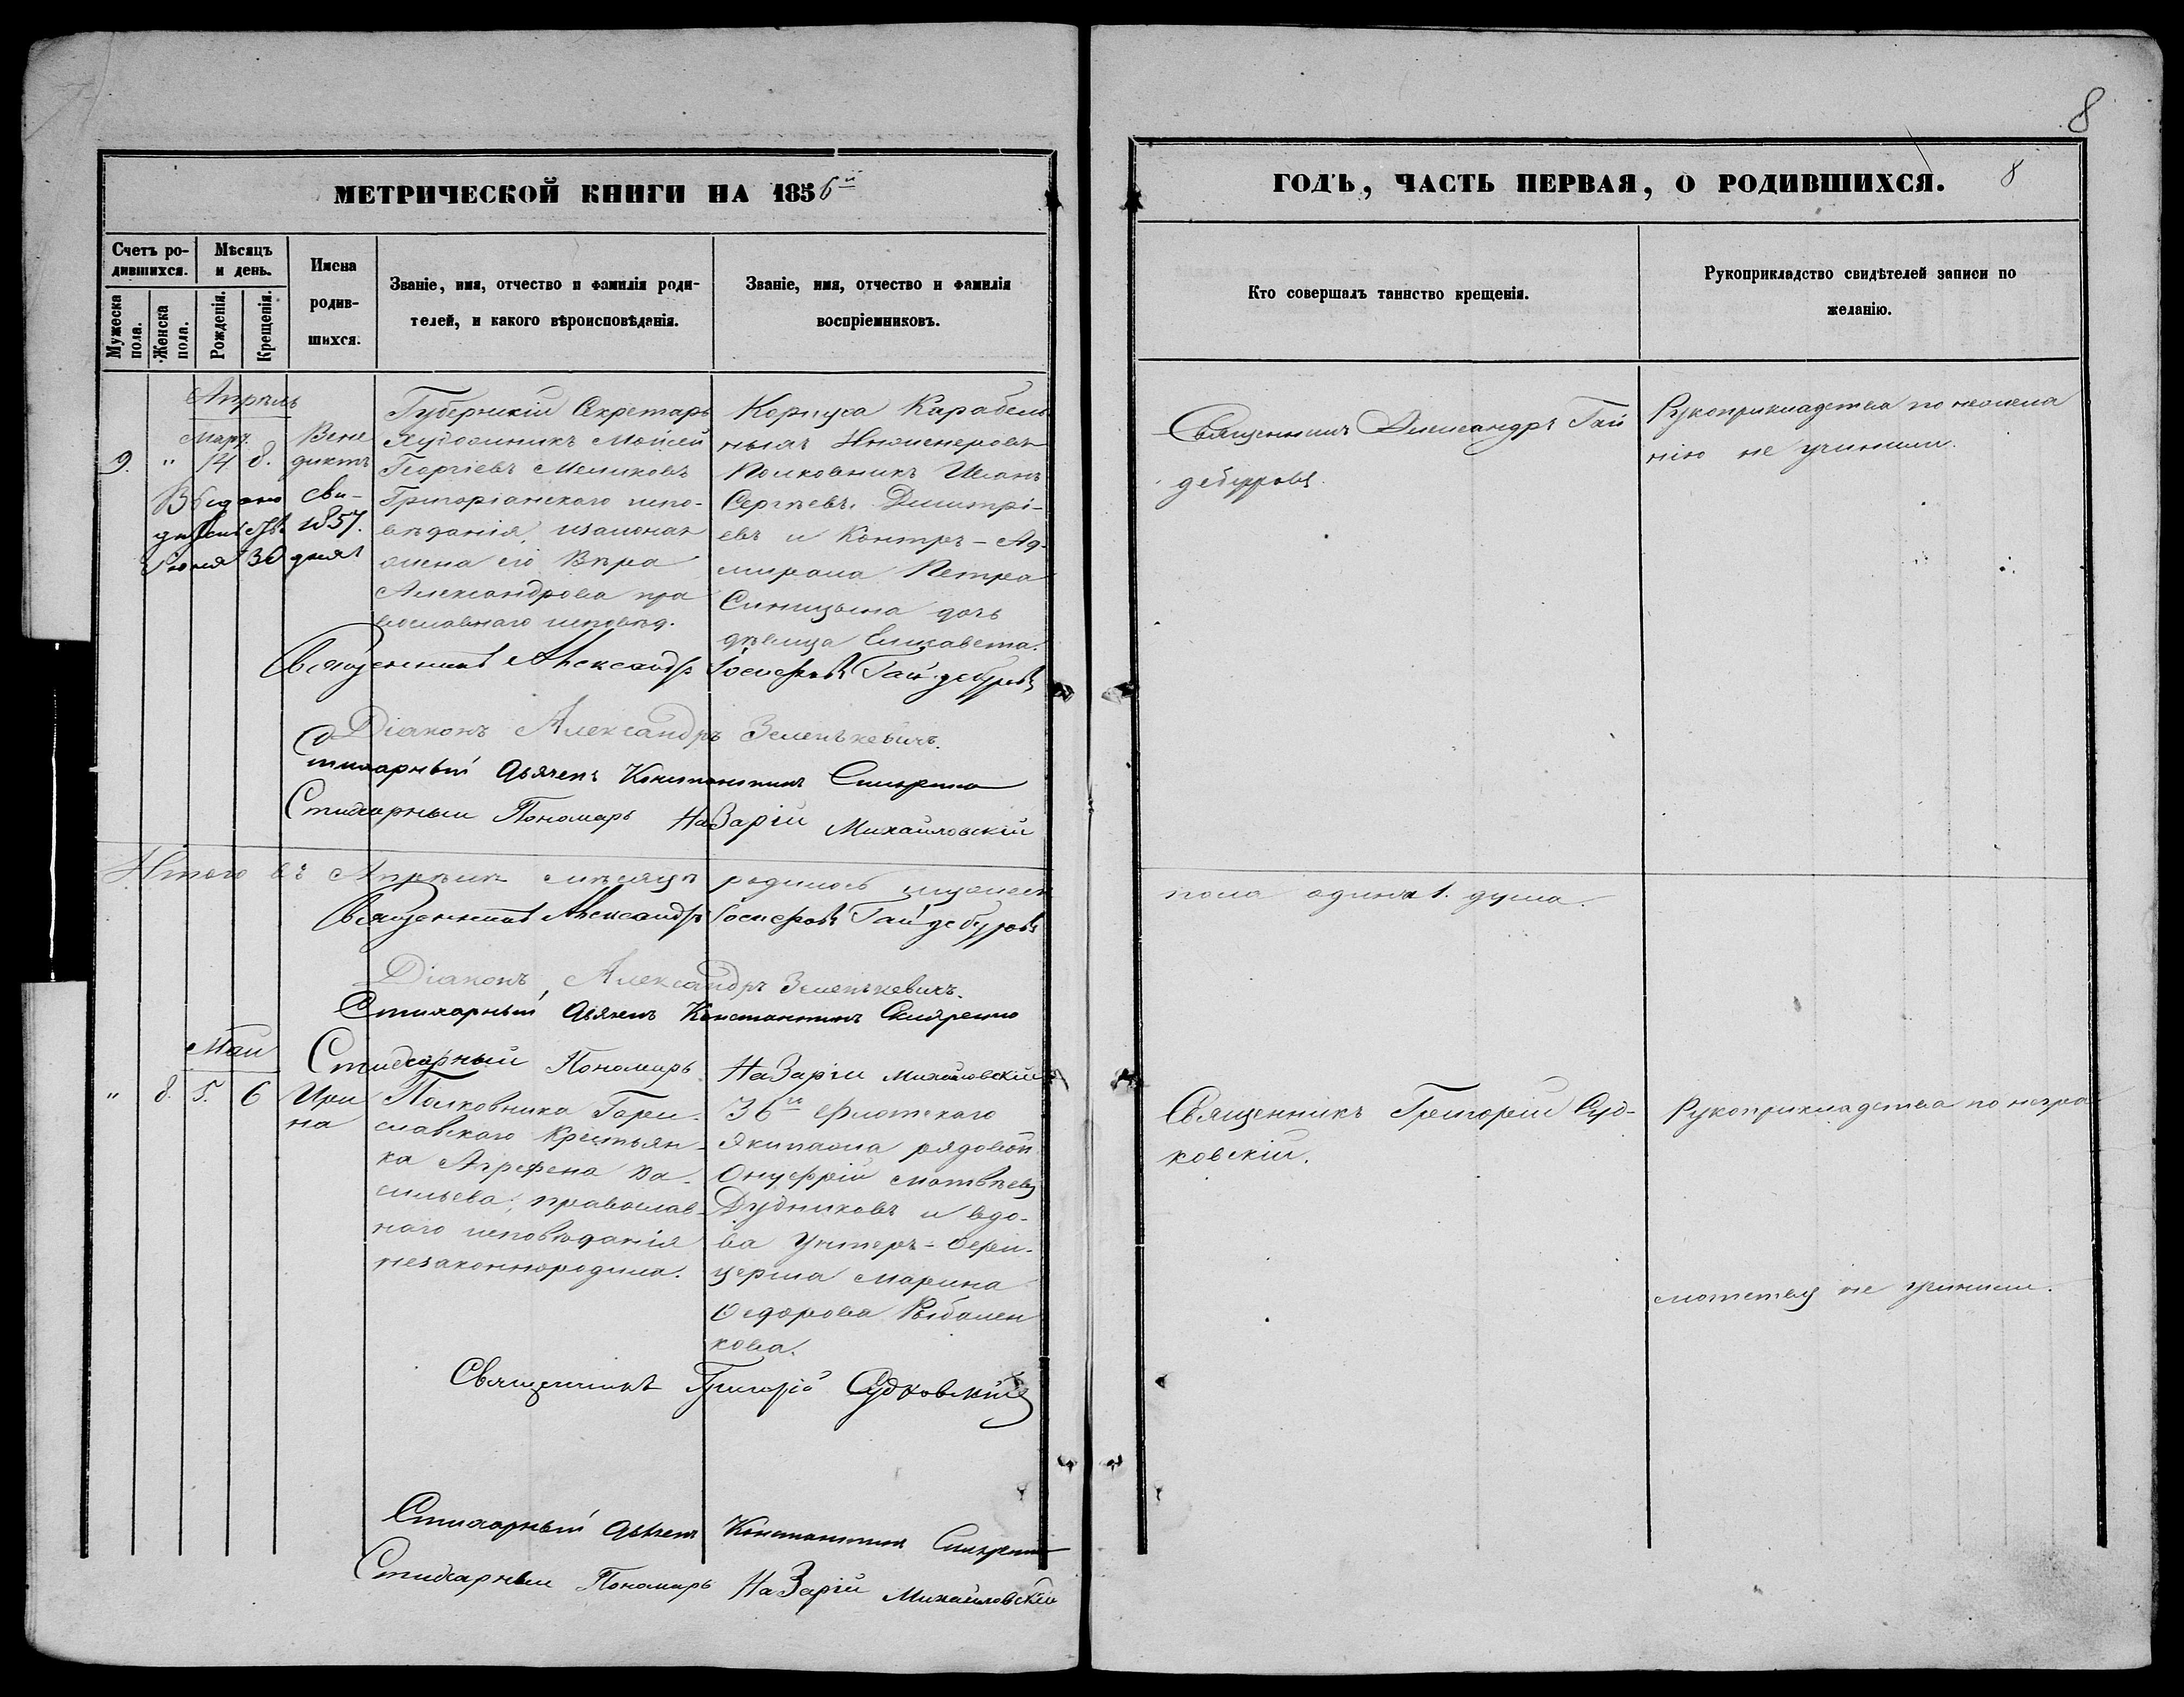 8
МЕТРИЧЕСКОЙ КНИГИ НА 1856й
ГОДЪ, ЧАСТЬ ПЕРВАЯ, О РОДИВШИХСЯ. 8
Счетъ ро-
дившихся.
Мужеска пола.
Женска пола.
Мѣсяцъ
и день.
Рожденія.
Крещенія.
Имена
родив-
шихся.
Званіе, имя, отчество и фамилія роди-
телей, и какого вѣроисповѣданія.
Званіе, имя, отчество и фамилія
воспріемниковъ.
Кто совершалъ таинство крещенія.
Рукоприкладство свидѣтелей записи по
желанію.
Апрѣль
Март.
9. " 14 8.
Вене
диктъ
Выдано сви-
1857.
Іюня 30 дня
Губернскій Секретарь
Художникъ Моисей
Георгіевъ Меликовъ
Григоріанскаго испо-
вѣданія, и законная
жена его Вѣра
Александрова пра
вославнаго исповѣд.
Корпуса Карабель
ныхъ Инженеровъ
Полковникъ Иванъ
Сергѣевъ Дмитрі-
евъ и Контръ-Ад-
мирала Петра
Синицына дочь
дѣвица Елисавета.
Священникъ Александръ Гай
дебуровъ.
Рукоприкладства по нежела
нію не учинили.
Священникъ Александръ Іосифовъ Гайдебуровъ
Діаконъ Александръ Зеленкевичъ.
Стихарный Дьячекъ Константинъ Скляренко
Стихарный Пономарь Назарій Михайловскій
Итого въ Апрѣлѣ мѣсяцѣ родилось мужеск
пола одна 1. душа.
Священникъ Александръ Іосифовъ Гайдебуровъ
Діаконъ Александръ Зеленкевичъ.
Стихарный Дьячекъ Константинъ Скляренко
Стихарный Пономарь Назарій Михайловскій
Май
" 8. 5. 6
Ири
на
Полковника Горе-
славскаго Крестьян-
ка Агрефена Ва-
сильева, православ-
наго исповѣданія
незаконнородила.
36го Флотскаго
Экипажа рядовой
Онуфрій Матвѣевъ
Дудниковъ и вдо-
ва Унтеръ-Офи-
церша Марина
Федорова Рыбален
кова.
Священникъ Григорій Суд-
ковскій.
Рукоприкладства по негра
мотству не учинили.
Священникъ Григорій Судковскій
Стихарный Дьячекъ Константинъ Скляренко
Стихарный Пономарь Назарій Михайловскій